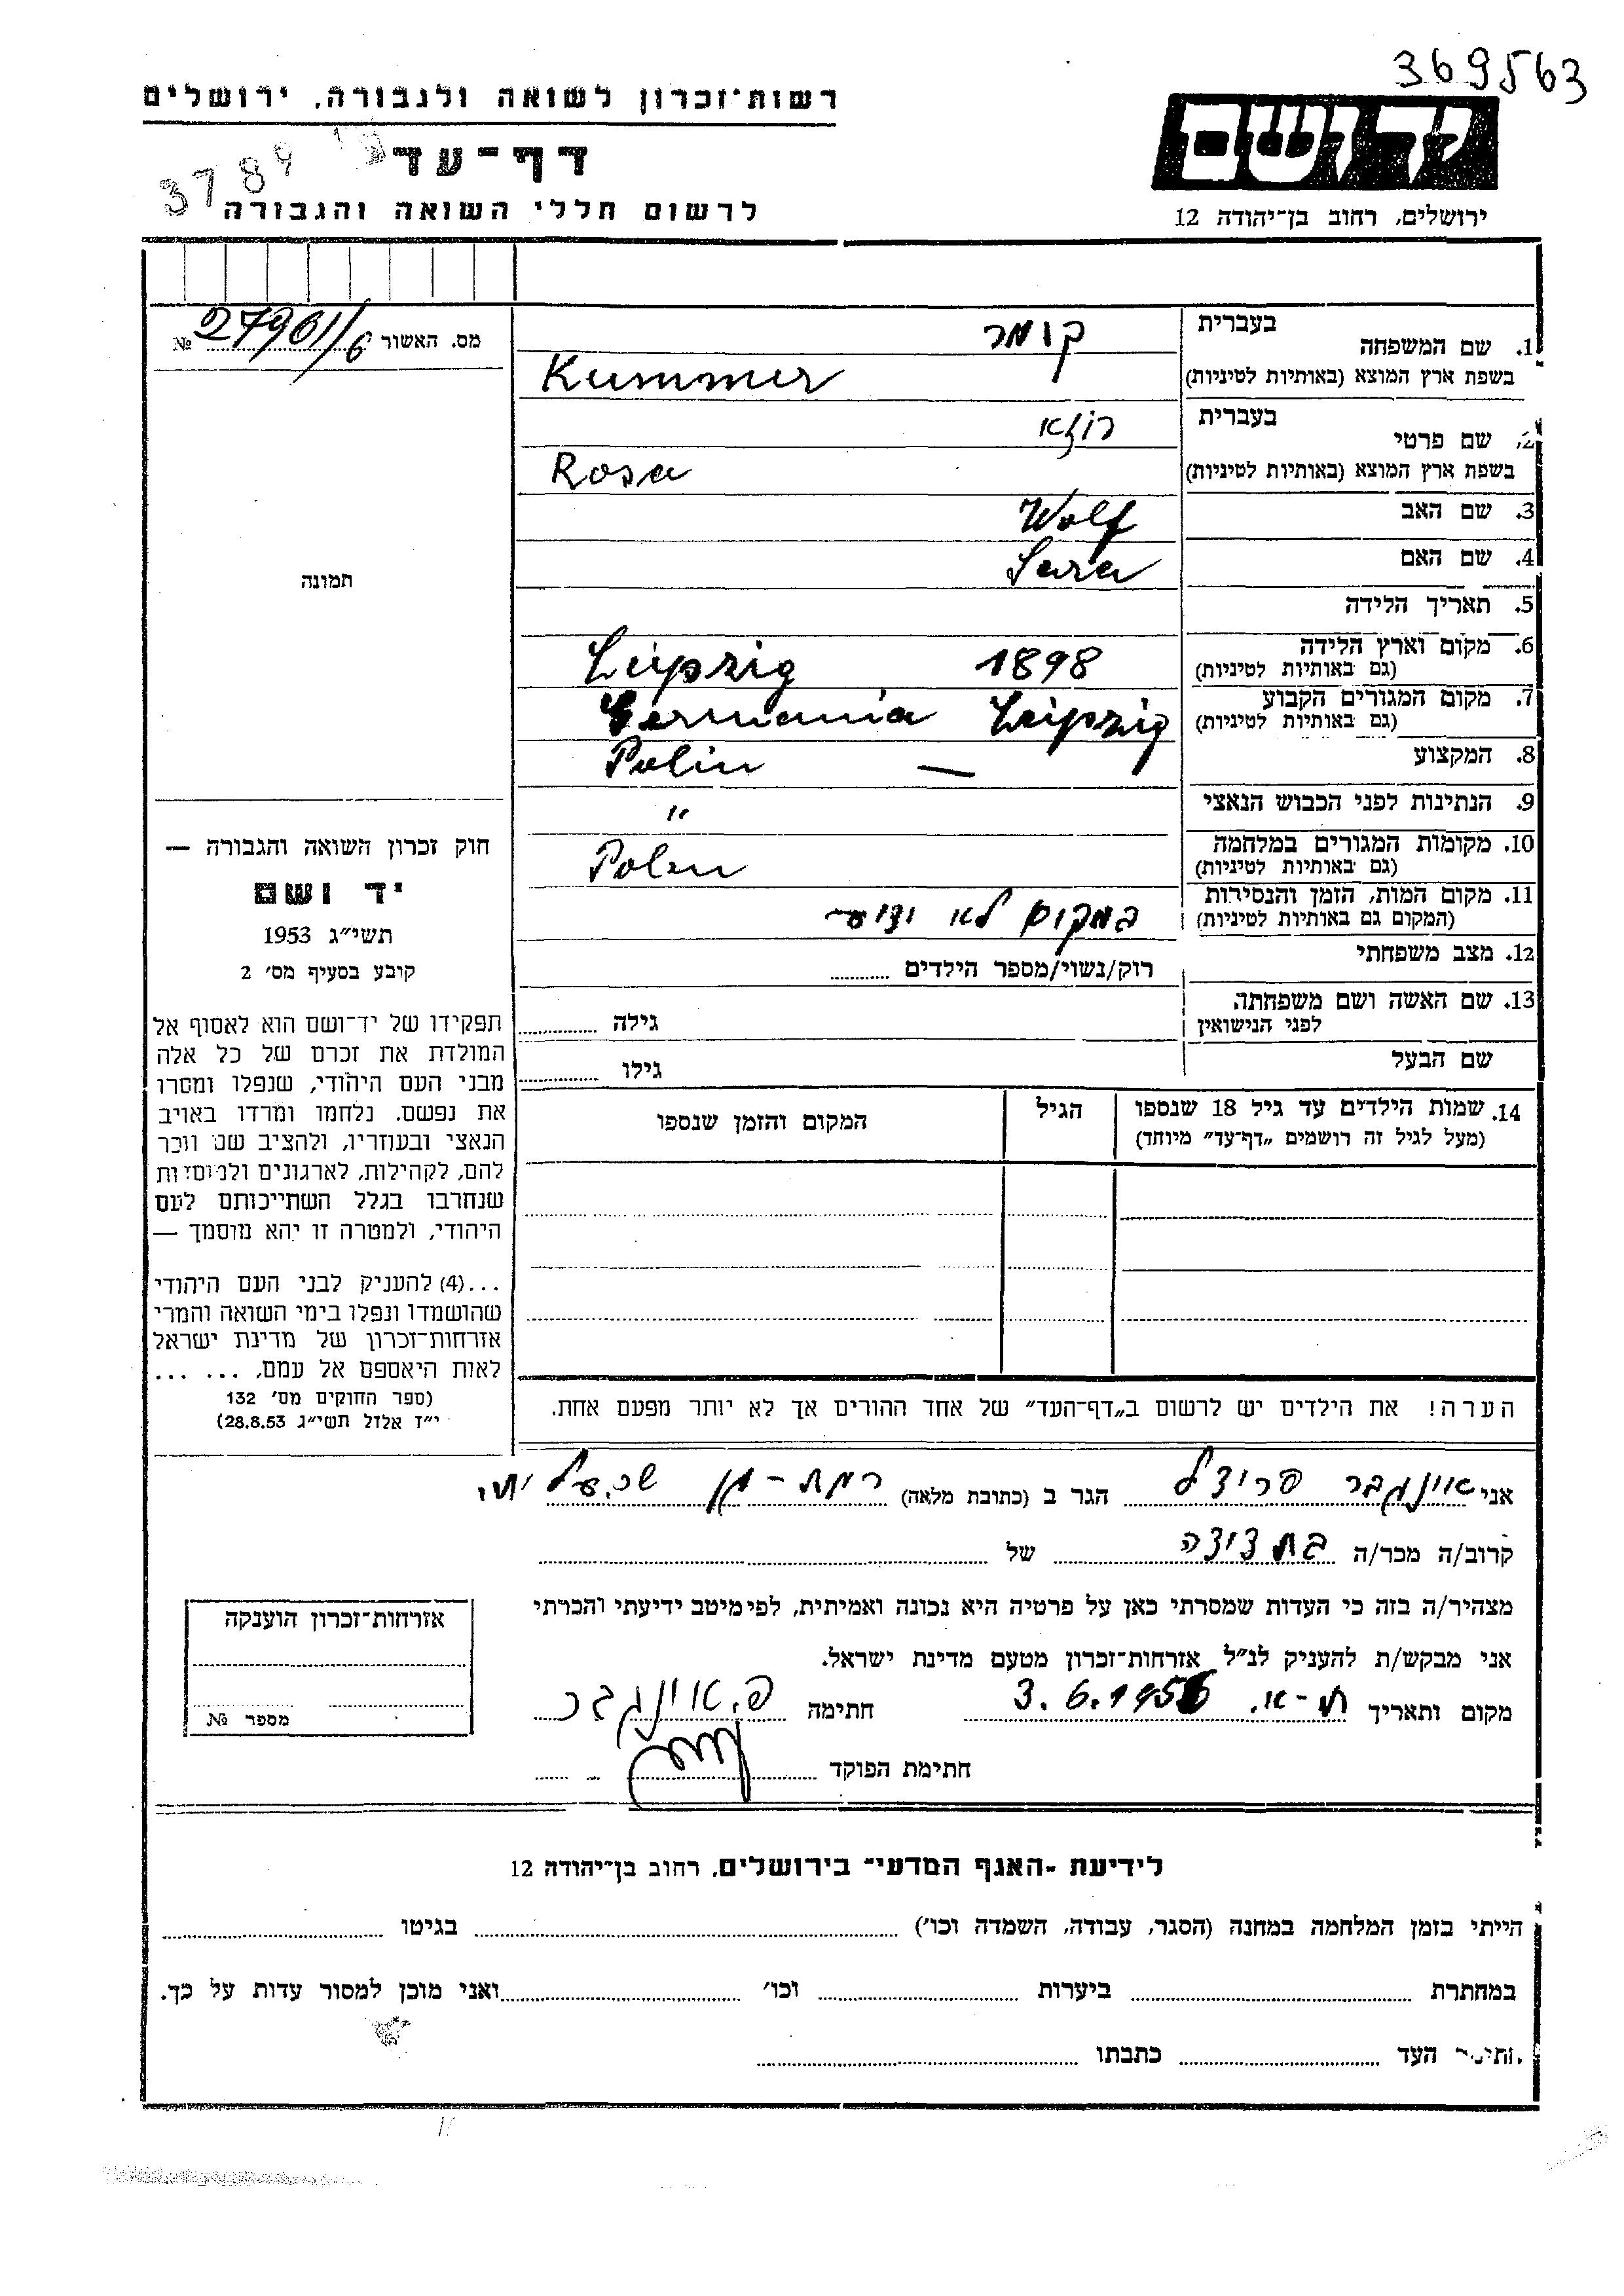 369563
רשות־זכרון לשואה ולגבורה, ירושלים
יד ושם
דף־עד
3789
לרשום חללי השואה והגבורה
ירושלים, רחוב בן־יהודה 12
1. שם המשפחה
בעברית
קומר
מס. האשור 27901/6 №
בשפת ארץ המוצא (באותיות לטיניות)
Kummer
2. שם פרטי
בעברית
רוזא
בשפת ארץ המוצא (באותיות לטיניות)
Rosa
3. שם האב Wolf
4. שם האם Sara
תמונה
5. תאריך הלידה
6. מקום וארץ הלידה
(גם באותיות לטיניות)
1898 Leipzig
7. מקום המגורים הקבוע
(גם באותיות לטיניות)
Leipzig Germania
8. המקצוע — Polin
9. הנתינות לפני הכבוש הנאצי "
10. מקומות המגורים במלחמה
(גם באותיות לטיניות)
Polen
11. מקום המות, הזמן והנסיבות
(המקום גם באותיות לטיניות)
במקום לא ידוע
12. מצב משפחתי
רוק/נשוי/מספר הילדים
13. שם האשה ושם משפחתה
לפני הנישואין
גילה
שם הבעל
גילו
14. שמות הילדים עד גיל 18 שנספו
(מעל לגיל זה רושמים „דף־עד” מיוחד)
הגיל
המקום והזמן שנספו
הערה! את הילדים יש לרשום ב„דף־העד” של אחד ההורים אך לא יותר מפעם אחת.
חוק זכרון השואה והגבורה —
יד ושם
תשי״ג 1953
קובע בסעיף מס׳ 2
תפקידו של יד־ושם הוא לאסוף אל
המולדת את זכרם של כל אלה
מבני העם היהודי, שנפלו ומסרו
את נפשם, נלחמו ומרדו באויב
הנאצי ובעוזריו, ולהציב שם וזכר
להם, לקהילות, לארגונים ולמוסדות
שנחרבו בגלל השתייכותם לעם
היהודי, ולמטרה זו יהא מוסמך —
...(4) להעניק לבני העם היהודי
שהושמדו ונפלו בימי השואה והמרי
אזרחות־זכרון של מדינת ישראל
לאות היאספם אל עמם, ... ...
(ספר החוקים מס׳ 132
י״ז אלול תשי״ג 28.8.53)
אני אוינגבר פרידל הגר ב (כתובת מלאה) רמת-גן
קרוב/ה מכר/ה בת דודה של
מצהיר/ה בזה כי העדות שמסרתי כאן על פרטיה היא נכונה ואמיתית, לפי מיטב ידיעתי והכרתי
אני מבקש/ת להעניק לנ״ל אזרחות־זכרון מטעם מדינת ישראל.
מקום ותאריך ת-א. 3.6.1956 חתימה פ. אוינגבר
חתימת הפוקד
אזרחות־זכרון הוענקה
מספר №
לידיעת ־האגף המדעי־ בירושלים, רחוב בן־יהודה 12
הייתי בזמן המלחמה במחנה (הסגר, עבודה, השמדה וכו׳) בגיטו
במחתרת ביערות וכו׳ ואני מוכן למסור עדות על כך.
חתימת העד כתבתו